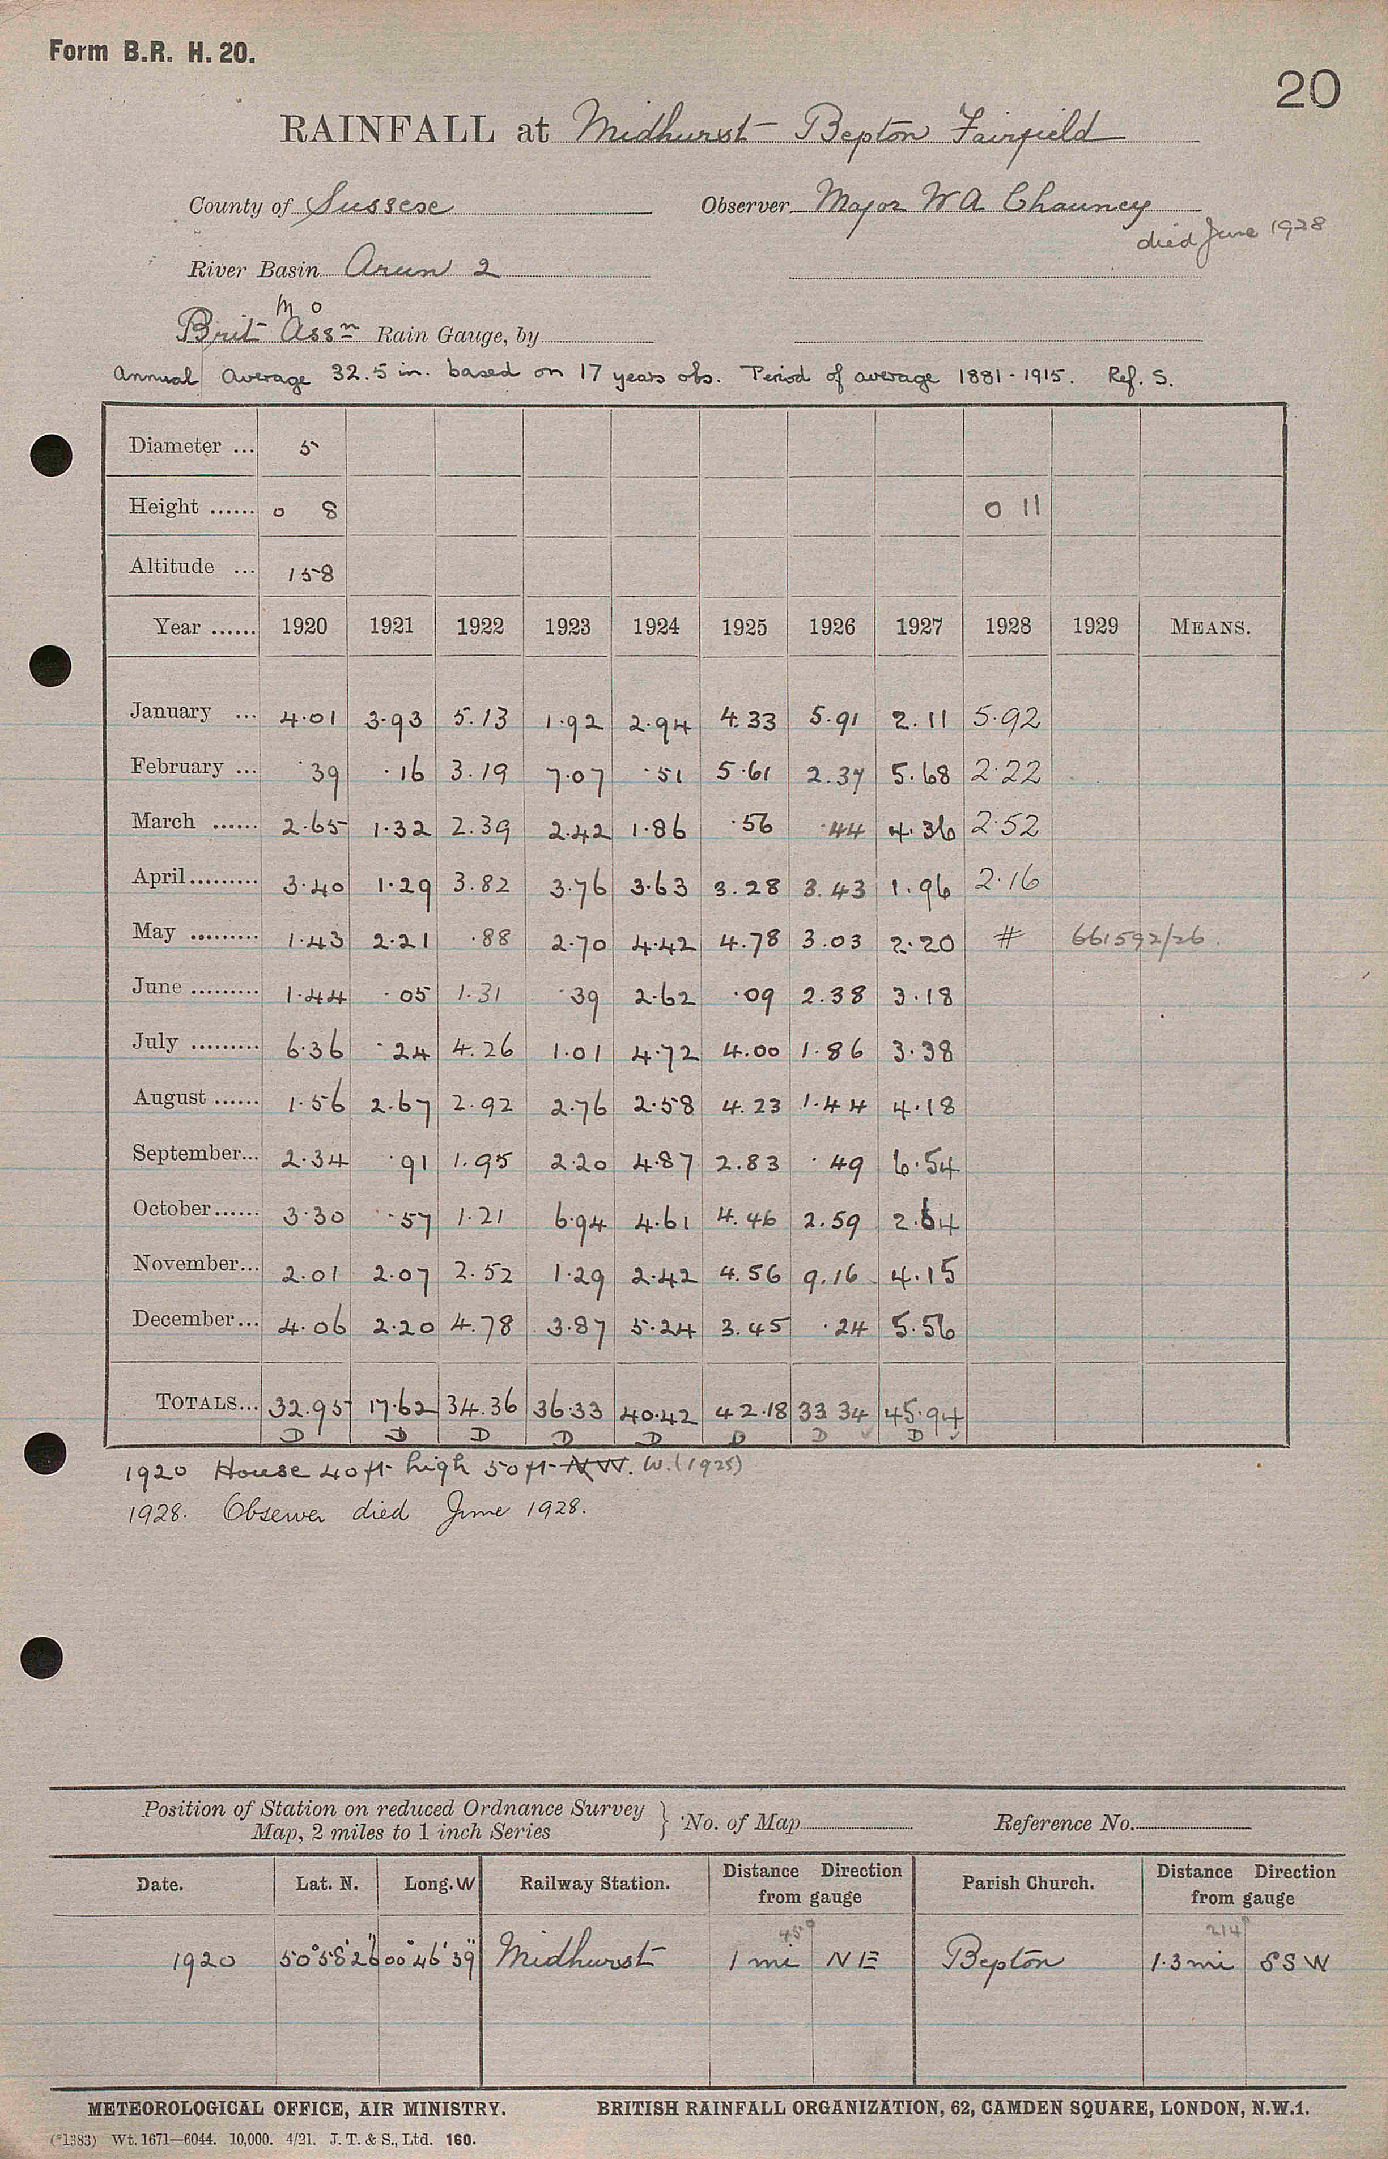 Form B.R. H. 20.
20
RAINFALL at Midhurst Bepton Fairfield
County of Sussex Observer Major W A Chauncy
died June 1928
River Basin Arun 2
M O
Brit Assn Rain Gauge, by
Annual Average 32.5 in. based on 17 years obs. Period of average 1881-1915. Ref. S.
Diameter ... 5
Height ...... 0 8 0 11
Altitude ... 158
Year ...... 1920 1921 1922 1923 1924 1925 1926 1927 1928 1929 MEANS.
January ... 4.01 3.93 5.13 1.92 2.94 4.33 5.91 2.11 5.92
February ... .39 .16 3.19 7.07 .51 5.61 2.37 5.68 2.22
March ...... 2.65 1.32 2.39 2.42 1.86 .56 .44 4.36 2.52
April ......... 3.40 1.29 3.82 3.76 3.63 3.28 3.43 1.96 2.16
May ......... 1.43 2.21 .88 2.70 4.42 4.78 3.03 2.20 # 661592/26.
June ......... 1.44 .05 1.31 .39 2.62 .09 2.38 3.18
July ......... 6.36 .24 4.26 1.01 4.72 4.00 1.86 3.38
August ...... 1.56 2.67 2.92 2.76 2.58 4.23 1.44 4.18
September... 2.34 .91 1.95 2.20 4.87 2.83 .49 6.54
October...... 3.30 .57 1.21 6.94 4.61 4.46 2.59 2.64
November... 2.01 2.07 2.52 1.29 2.42 4.56 9.16 4.15
December... 4.06 2.20 4.78 3.87 5.24 3.45 .24 5.56
TOTALS... 32.95 17.62 34.36 36.33 40.42 42.18 33 34 45.94
D D D D D D D ✓ D ✓
1920 House 40ft high 50ft NW. W. (1925)
1928. Observer died June 1928.
Position of Station on reduced Ordnance Survey
Map, 2 miles to 1 inch Series } No. of Map Reference No.
Date. Lat. N. Long. W Railway Station. Distance Direction from gauge Parish Church. Distance Direction from gauge
45° 214°
1920 50°58'26" 00°46'39" Midhurst 1 mi NE Bepton 1.3 mi SSW
METEOROLOGICAL OFFICE, AIR MINISTRY. BRITISH RAINFALL ORGANIZATION, 62, CAMDEN SQUARE, LONDON, N.W.1.
(*1383) Wt. 1671—6044. 10,000. 4/21. J. T. & S., Ltd. 160.